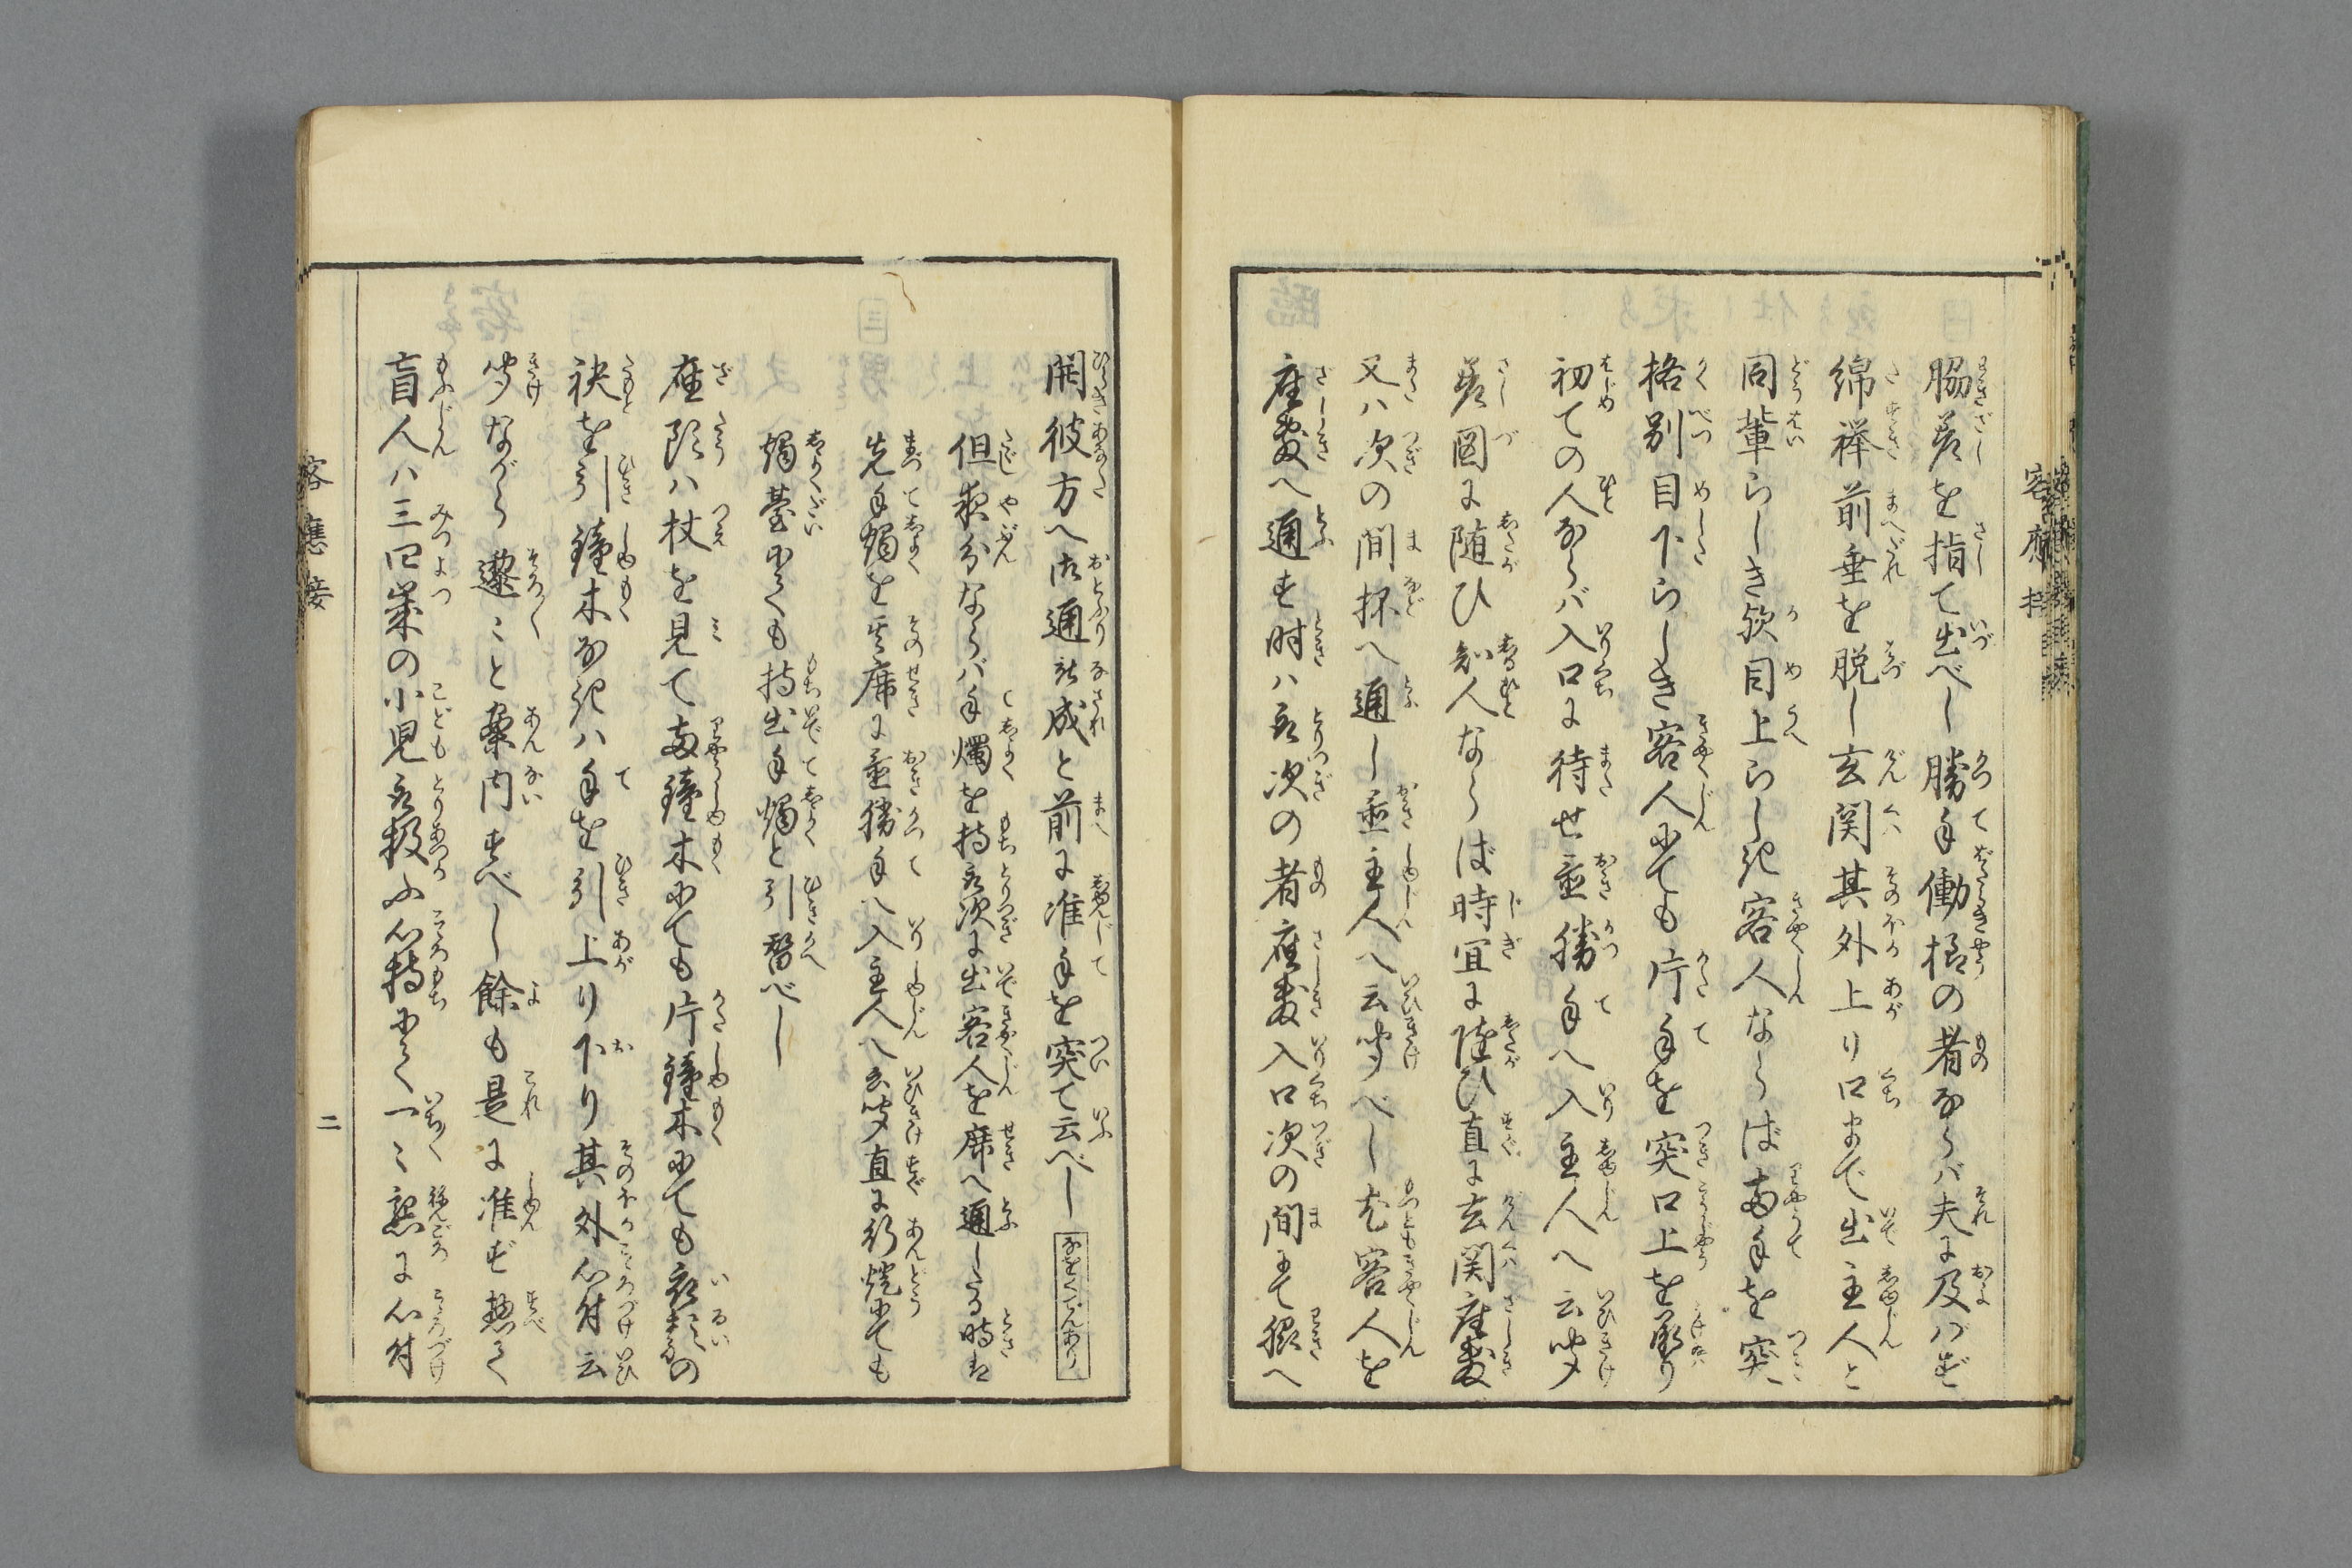 脇差を指て出べし勝手働拵の者ならバ夫に及バず
綿襷前垂を脱し玄関其外上り口まで出主人と
同輩らしき歟目上らしき客人ならば両手を突
格別目下らしき客人にても片手を突口上を承り
初ての人ならバ入口に待せ置勝手へ入主人へ云聞
差図に随ひ知人ならば時宜に随ひ直に玄関座敷
又ハ次の間抔へ通し置主人へ云聞べし尤客人を
座敷へ通す時ハ取次の者座敷入口次の間にて脇へ
開彼方へ御通被成と前に准手を突て云べし なをくでんあり
但夜分ならバ手燭を持取次に出客人を席へ通したる時は
先手燭を其席に置勝手へ入主人へ云聞直に行燈にても
燭臺にても持出手燭と引替べし
座頭ハ杖を見て両鐘木にても片鐘木にても衣類の
袂を引鐘木なきハ手を引上り下り其外心付云
聞ながら遯々と案内すべし餘も是に准ず惣て
盲人ハ三四歳の小児取扱ふ心持にて一々懇に心付
客應接
二